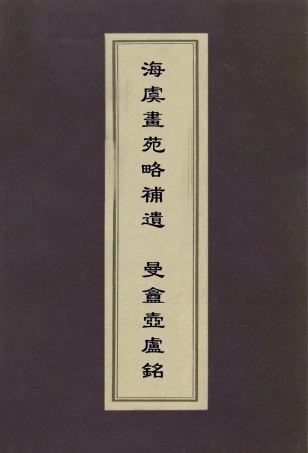 海虞畫苑略補遺　曼盦壺盧銘